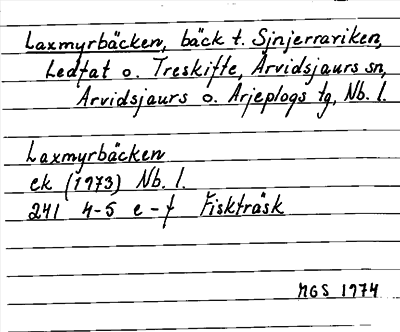 Laxmyrbäcken, bäck t. Sjnjerrariken,
Ledfat o. Treskifte, Arvidsjaurs sn,
Arvidsjaurs o. Arjeplogs tg, Nb. l.
Laxmyrbäcken
ek (1973) Nb. l.
241 4-5 e-f Fiskträsk
MGS 1974